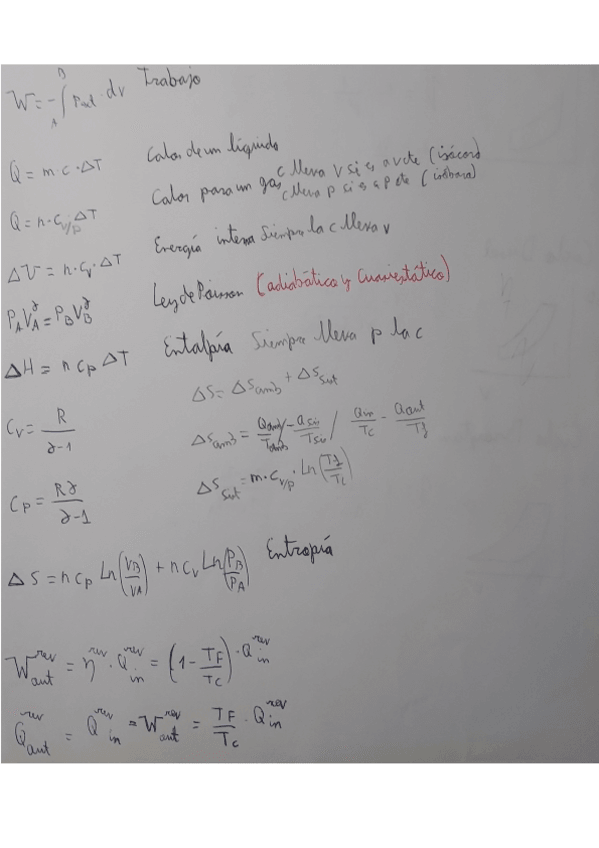 W = -∫_A^B Pext · dv Trabajo
Q = m·c·ΔT Calor de un líquido
Q = n·c_{v/p} ΔT Calor para un gas, c lleva v si es a v cte (isócoro)
c lleva p si es a p cte (isóbara)
ΔU = n·c_v·ΔT Energía interna siempre la c lleva v
P_A V_A^γ = P_B V_B^γ Ley de Poisson (adiabático y cuasiestático)
ΔH = n c_p ΔT Entalpía Siempre lleva p la c
ΔS = ΔS_amb + ΔS_sist
C_v = R/(γ-1)
ΔS_amb = Q_amb/T_amb = -Q_sis/T_sis / Q_in/T_c - Q_out/T_f
C_p = Rγ/(γ-1)
ΔS_sist = m·c_{v/p}·Ln(T_f/T_c)
ΔS = n c_p Ln(V_B/V_A) + n c_v Ln(P_B/P_A) Entropía
W_out^rev = η^rev · Q_in^rev = (1 - T_F/T_C) · Q_in^rev
Q_out^rev = Q_in^rev - W_out^rev = T_F/T_C · Q_in^rev